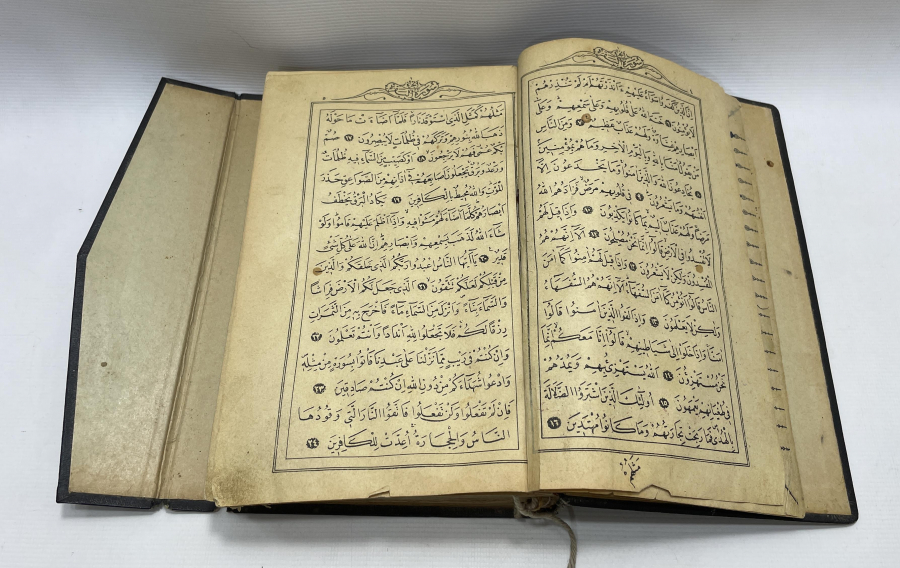 سورة البقرة
اِنَّ الَّذِينَ كَفَرُوا سَوَاءٌ عَلَيْهِمْ ءَاَنْذَرْتَهُمْ اَمْ لَمْ تُنْذِرْهُمْ
لَا يُؤْمِنُونَ ٦ خَتَمَ اللهُ عَلٰى قُلُوبِهِمْ وَعَلٰى سَمْعِهِمْ وَعَلٰى
اَبْصَارِهِمْ غِشَاوَةٌ وَلَهُمْ عَذَابٌ عَظِيمٌ ٧ وَمِنَ النَّاسِ
مَنْ يَقُولُ اٰمَنَّا بِاللهِ وَبِالْيَوْمِ الْاٰخِرِ وَمَا هُمْ بِمُؤْمِنِينَ
٨ يُخَادِعُونَ اللهَ وَالَّذِينَ اٰمَنُوا وَمَا يَخْدَعُونَ اِلَّا
اَنْفُسَهُمْ وَمَا يَشْعُرُونَ ٩ فِي قُلُوبِهِمْ مَرَضٌ فَزَادَهُمُ اللهُ
مَرَضًا وَلَهُمْ عَذَابٌ اَلِيمٌ بِمَا كَانُوا يَكْذِبُونَ ١٠ وَاِذَا قِيلَ لَهُمْ
لَا تُفْسِدُوا فِي الْاَرْضِ قَالُوا اِنَّمَا نَحْنُ مُصْلِحُونَ ١١ اَلَا اِنَّهُمْ هُمُ
الْمُفْسِدُونَ وَلٰكِنْ لَا يَشْعُرُونَ ١٢ وَاِذَا قِيلَ لَهُمْ اٰمِنُوا كَمَا اٰمَنَ
النَّاسُ قَالُوا اَنُؤْمِنُ كَمَا اٰمَنَ السُّفَهَاءُ اَلَا اِنَّهُمْ هُمُ السُّفَهَاءُ
وَلٰكِنْ لَا يَعْلَمُونَ ١٣ وَاِذَا لَقُوا الَّذِينَ اٰمَنُوا قَالُوا
اٰمَنَّا وَاِذَا خَلَوْا اِلٰى شَيَاطِينِهِمْ قَالُوا اِنَّا مَعَكُمْ اِنَّمَا
نَحْنُ مُسْتَهْزِؤُنَ ١٤ اَللهُ يَسْتَهْزِئُ بِهِمْ وَيَمُدُّهُمْ
فِي طُغْيَانِهِمْ يَعْمَهُونَ ١٥ اُولٰئِكَ الَّذِينَ اشْتَرَوُا الضَّلَالَةَ
بِالْهُدٰى فَمَا رَبِحَتْ تِجَارَتُهُمْ وَمَا كَانُوا مُهْتَدِينَ ١٦
مَثَلُهُمْ
سورة البقرة
٥
مَثَلُهُمْ كَمَثَلِ الَّذِي اسْتَوْقَدَ نَارًا فَلَمَّا اَضَاءَتْ مَا حَوْلَهُ
ذَهَبَ اللهُ بِنُورِهِمْ وَتَرَكَهُمْ فِي ظُلُمَاتٍ لَا يُبْصِرُونَ ١٧ صُمٌّ
بُكْمٌ عُمْيٌ فَهُمْ لَا يَرْجِعُونَ ١٨ اَوْ كَصَيِّبٍ مِنَ السَّمَاءِ فِيهِ ظُلُمَاتٌ
وَرَعْدٌ وَبَرْقٌ يَجْعَلُونَ اَصَابِعَهُمْ فِي اٰذَانِهِمْ مِنَ الصَّوَاعِقِ حَذَرَ
الْمَوْتِ وَاللهُ مُحِيطٌ بِالْكَافِرِينَ ١٩ يَكَادُ الْبَرْقُ يَخْطَفُ
اَبْصَارَهُمْ كُلَّمَا اَضَاءَ لَهُمْ مَشَوْا فِيهِ وَاِذَا اَظْلَمَ عَلَيْهِمْ قَامُوا وَلَوْ
شَاءَ اللهُ لَذَهَبَ بِسَمْعِهِمْ وَاَبْصَارِهِمْ اِنَّ اللهَ عَلٰى كُلِّ شَيْءٍ
قَدِيرٌ ٢٠ يَا اَيُّهَا النَّاسُ اعْبُدُوا رَبَّكُمُ الَّذِي خَلَقَكُمْ وَالَّذِينَ
مِنْ قَبْلِكُمْ لَعَلَّكُمْ تَتَّقُونَ ٢١ اَلَّذِي جَعَلَ لَكُمُ الْاَرْضَ فِرَاشًا
وَالسَّمَاءَ بِنَاءً وَاَنْزَلَ مِنَ السَّمَاءِ مَاءً فَاَخْرَجَ بِهِ مِنَ الثَّمَرَاتِ
رِزْقًا لَكُمْ فَلَا تَجْعَلُوا لِلّٰهِ اَنْدَادًا وَاَنْتُمْ تَعْلَمُونَ ٢٢
وَاِنْ كُنْتُمْ فِي رَيْبٍ مِمَّا نَزَّلْنَا عَلٰى عَبْدِنَا فَاْتُوا بِسُورَةٍ مِنْ مِثْلِهِ
وَادْعُوا شُهَدَاءَكُمْ مِنْ دُونِ اللهِ اِنْ كُنْتُمْ صَادِقِينَ ٢٣
فَاِنْ لَمْ تَفْعَلُوا وَلَنْ تَفْعَلُوا فَاتَّقُوا النَّارَ الَّتِي وَقُودُهَا
النَّاسُ وَالْحِجَارَةُ اُعِدَّتْ لِلْكَافِرِينَ ٢٤